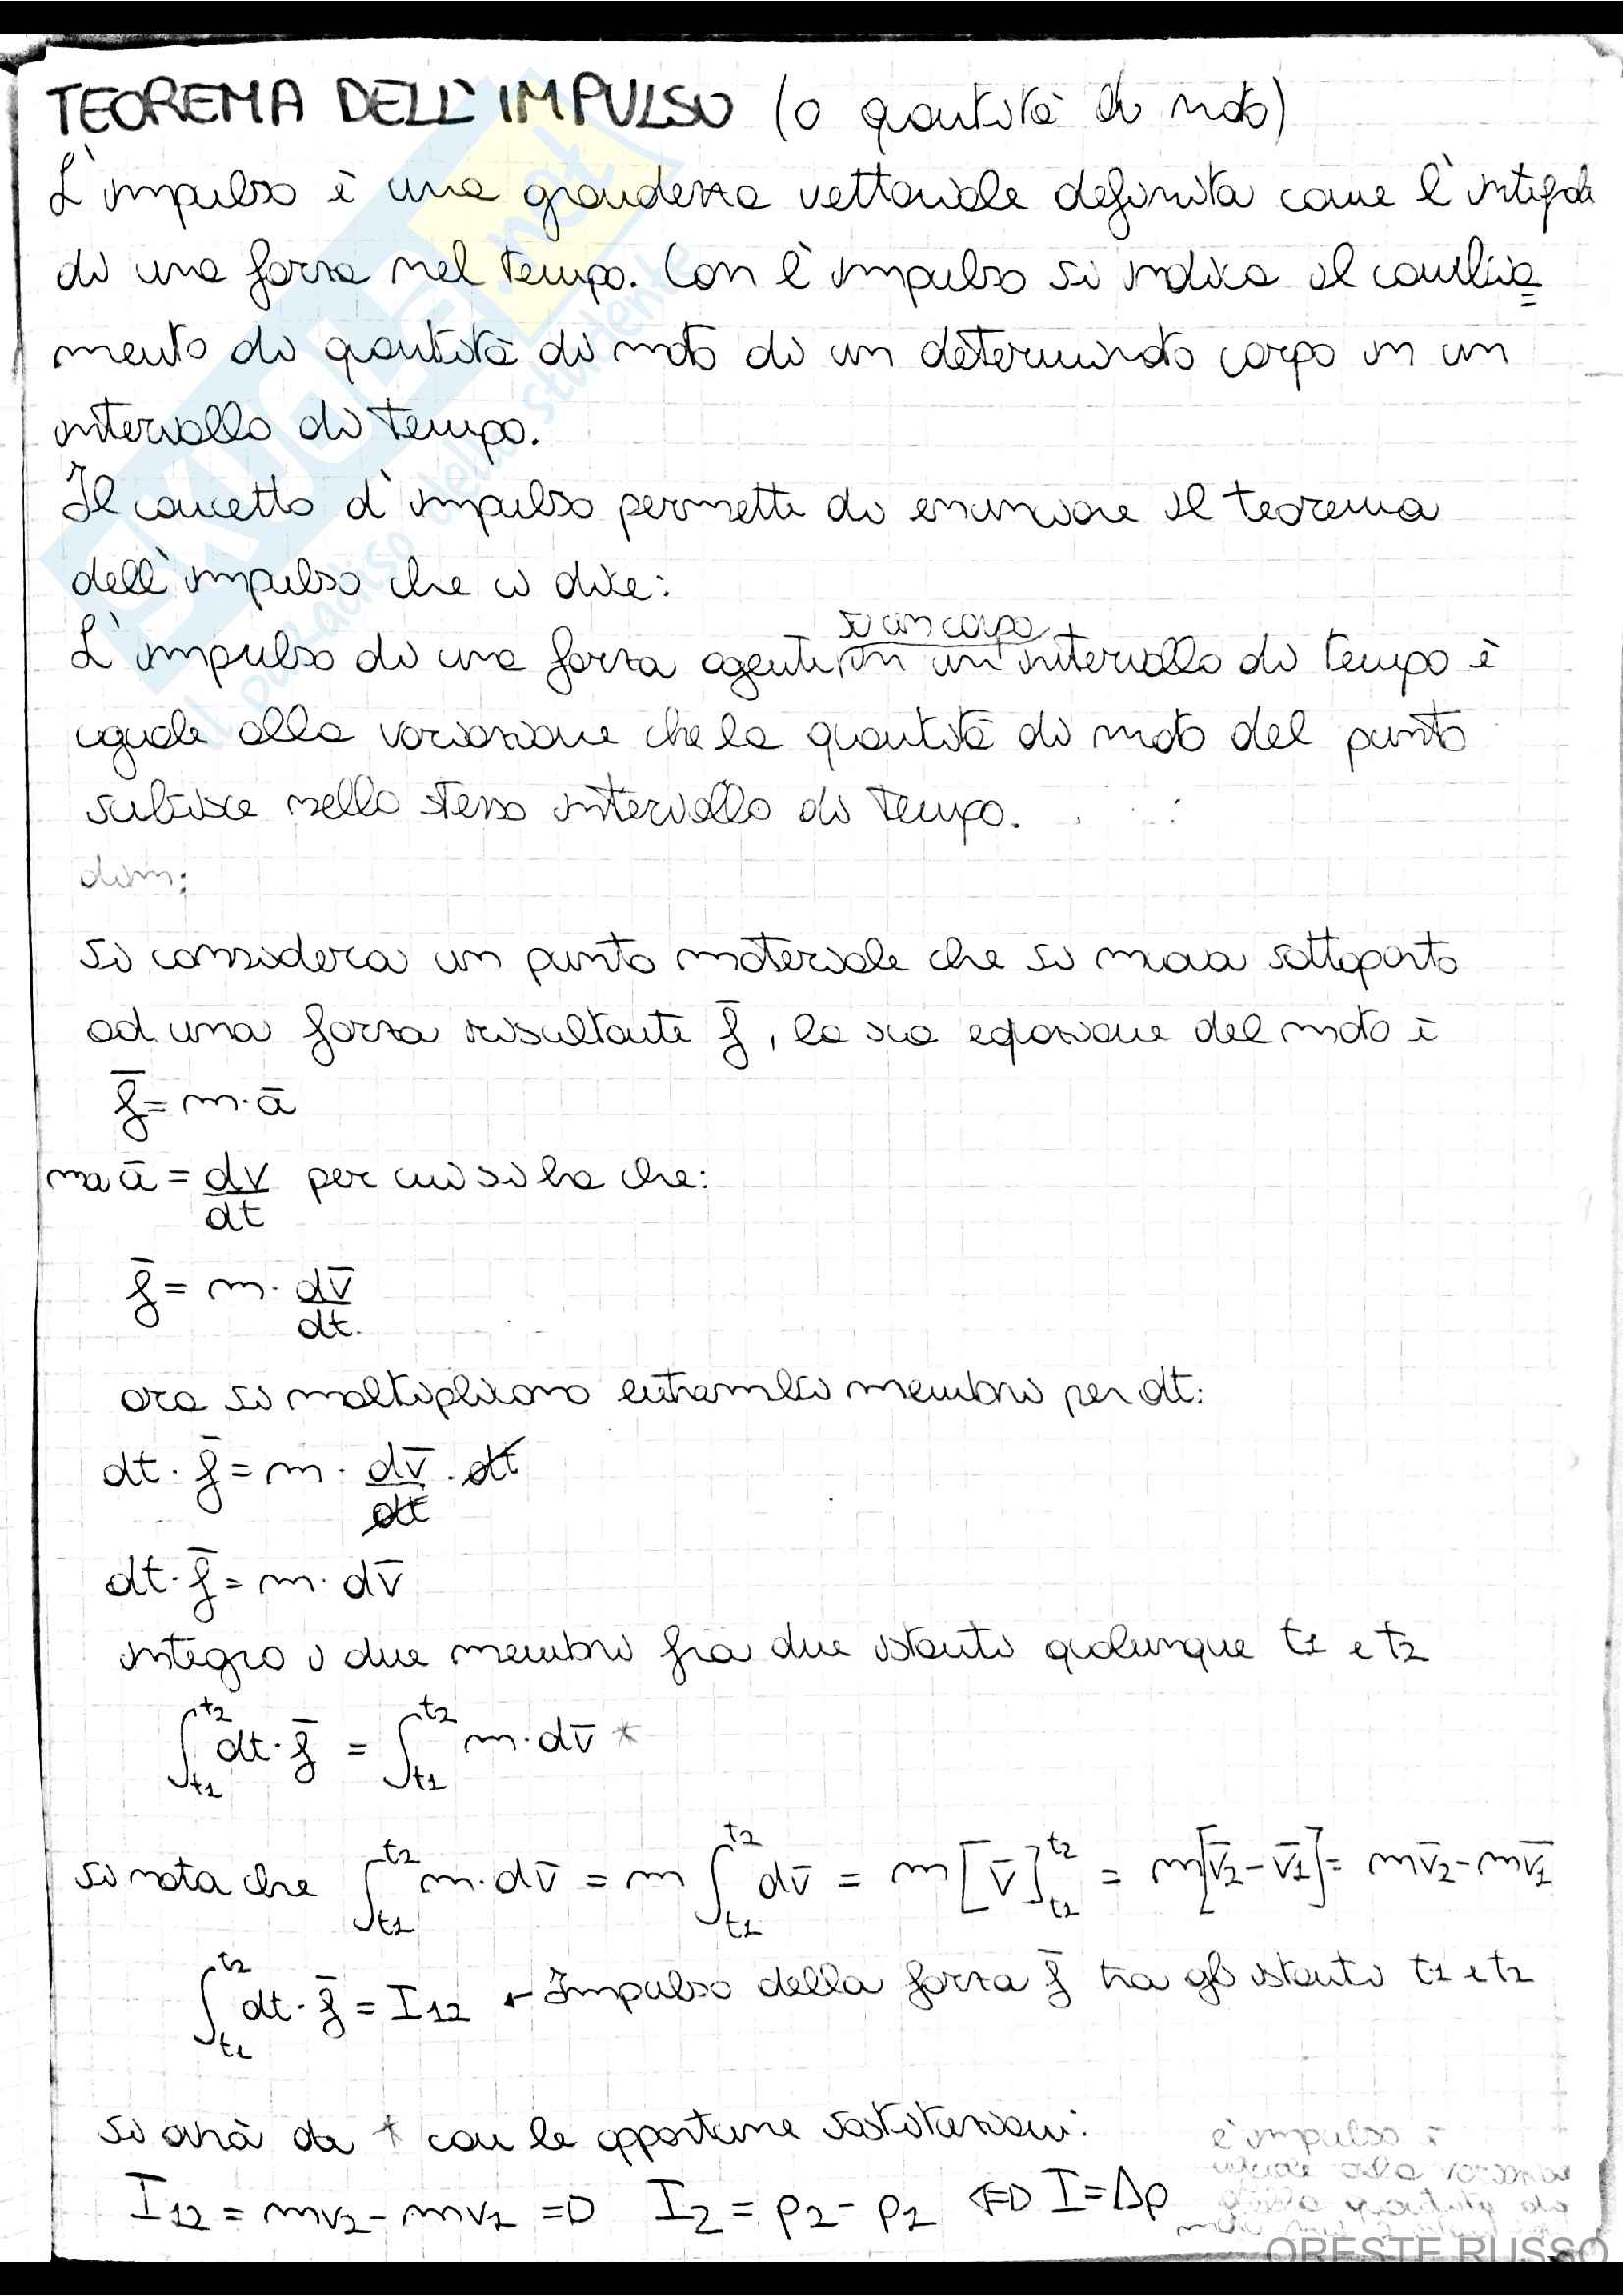 TEOREMA DELL'IMPULSO (o quantità di moto)
L'impulso è una grandezza vettoriale definita come l'integrale
di una forza nel tempo. Con l'impulso si indica il cambia=
mento di quantità di moto di un determinato corpo in un
intervallo di tempo.
Il concetto d'impulso permette di enunciare il teorema
dell'impulso che ci dice:
su un corpo
L'impulso di una forza agente in un intervallo di tempo è
uguale alla variazione che la quantità di moto del punto
subisce nello stesso intervallo di tempo.
dim:
si considera un punto materiale che si muova sottoposto
ad una forza risultante f̄, la sua equazione del moto è
f̄ = m·ā
ma ā = dv/dt per cui si ha che:
f̄ = m· dv̄/dt.
ora si moltiplicano entrambi membri per dt:
dt·f̄ = m· dv̄/dt ·dt
dt·f̄ = m·dv̄
integro i due membri fra due istanti qualunque t1 e t2
∫t1t2 dt·f̄ = ∫t1t2 m·dv̄ *
si nota che ∫t1t2 m·dv̄ = m ∫t1t2 dv̄ = m [v̄]t1t2 = m[v̄2 - v̄1] = mv̄2 - mv̄1
∫t1t2 dt·f̄ = I12 ← Impulso della forza f̄ tra gli istanti t1 e t2
si avrà da * con le opportune sostituzioni:
I12 = mv2 - mv1 => I2 = p2 - p1 <=> I = Δp
l'impulso è
uguale alla variazione
della quantità di
ORESTE RUSSO
SKUOLA.net
il paradiso dello studente